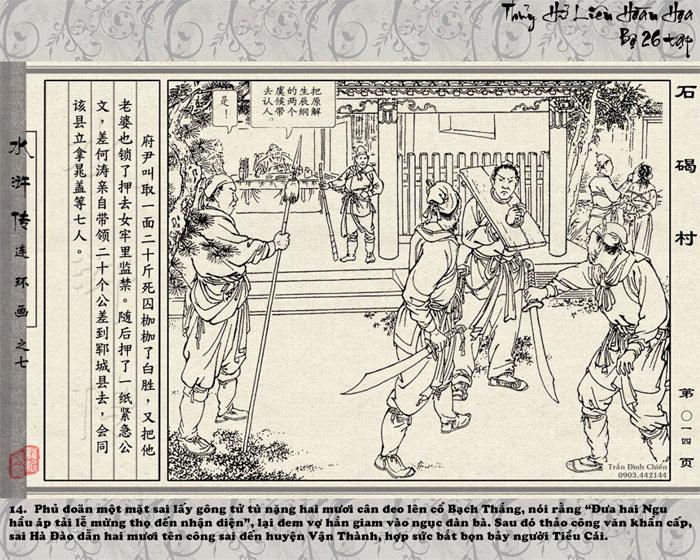 Thủy Hử Liên Hoàn Họa
Bộ 26 tập
石碣村
第〇一四页
把原解
生辰纲
的两个
虞候带
去认人。
是！
府尹叫取一面二十斤死囚枷枷了白胜，又把他
老婆也锁了押去女牢里监禁。随后押了一纸紧急公
文，差何涛亲自带领二十个公差到郓城县去，会同
该县立拿晁盖等七人。
水浒传连环画之七
Trần Đình Chiến
0903.442144
14. Phủ doãn một mặt sai lấy gông tử tù nặng hai mươi cân đeo lên cổ Bạch Thắng, nói rằng “Đưa hai Ngu
hầu áp tải lễ mừng thọ đến nhận diện”, lại đem vợ hắn giam vào ngục đàn bà. Sau đó thảo công văn khẩn cấp,
sai Hà Đào dẫn hai mươi tên công sai đến huyện Vận Thành, hợp sức bắt bọn bảy người Tiều Cái.